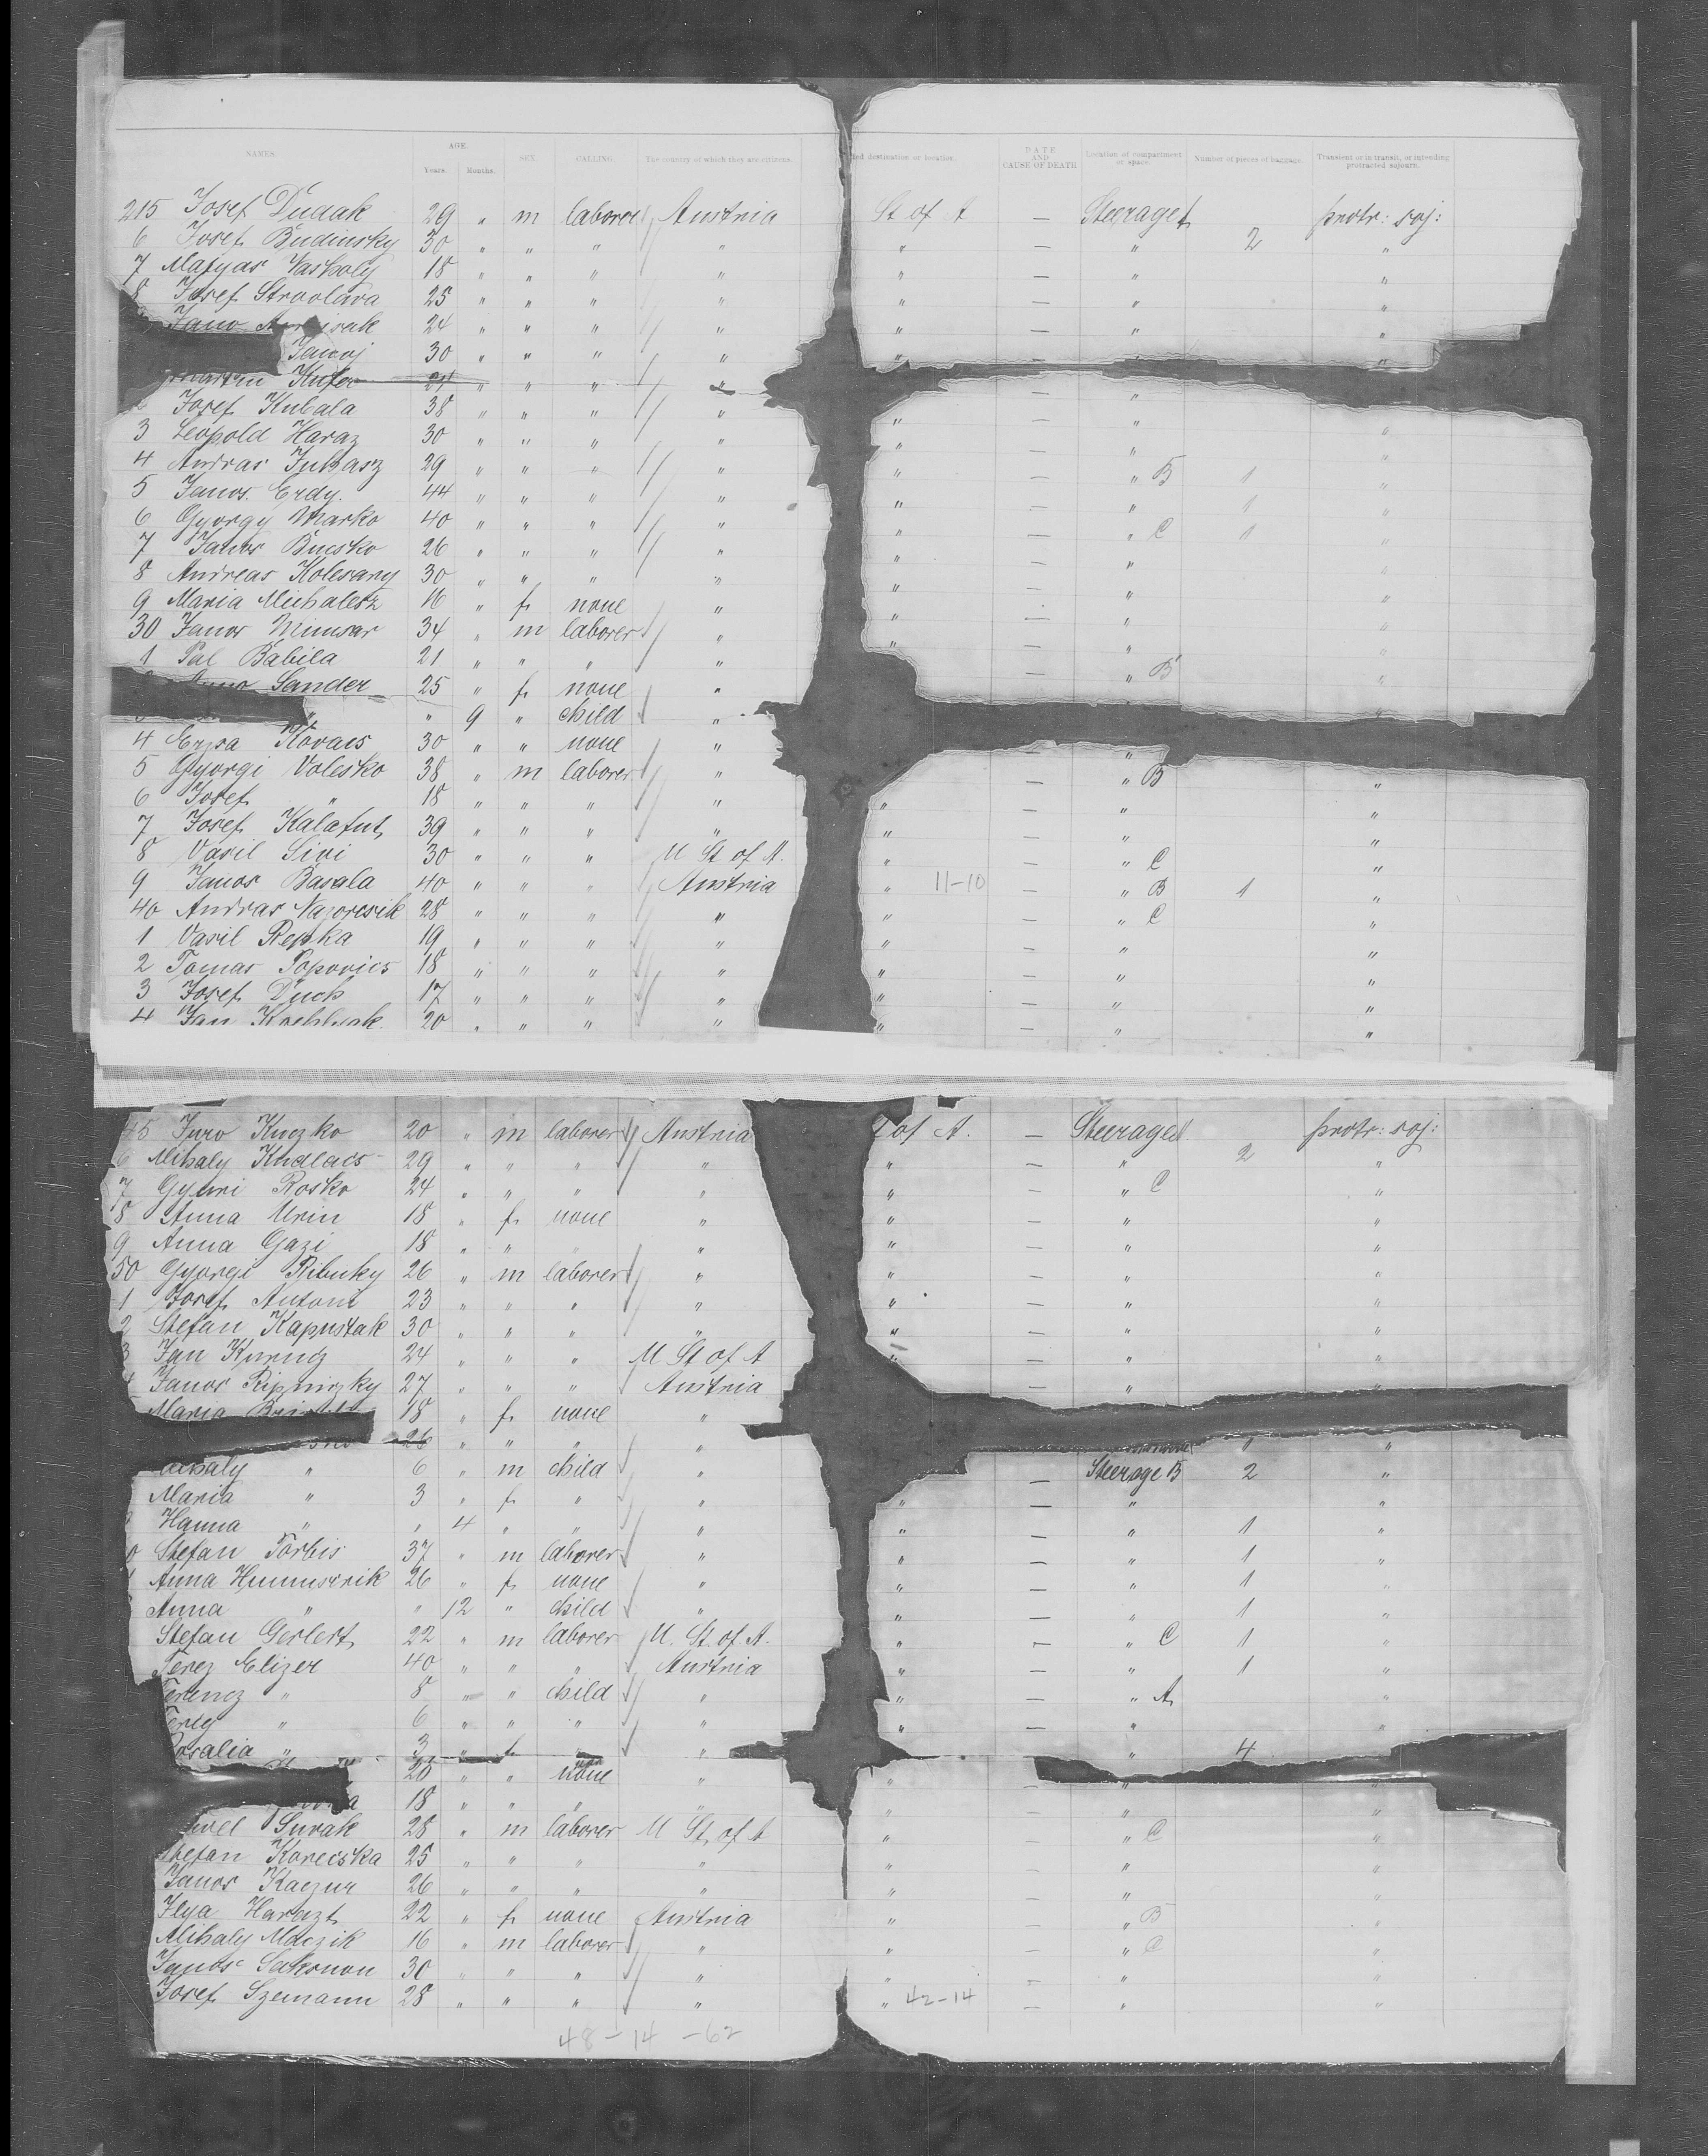 NAMES. AGE. Years. Months. SEX. CALLING. The country of which they are citizens. destination or location. DATE AND CAUSE OF DEATH Location of compartment or space. Number of pieces of baggage. Transient or in transit, or intending protracted sojourn.
215 Josef Dudak 29 " m laborer Austria St of A — Steerage protr: soj:
6 Josef Budinsky 30 " " " " " — " 2 "
7 Matyas 18 " " " " " — " "
8 Josef 25 " " " " " — " "
Jano 24 " " " " " — " "
30 " " " " " "
Kufer 24 " " " " "
Josef Kubala 38 " " " " " — " "
3 Leopold Haraz 30 " " " " " — " "
4 Andras Juhasz 29 " " " " " — " B 1 "
5 Janos Erdy. 44 " " " " " — " 1 "
6 Gyorgy Marko 40 " " " " " — " C 1 "
7 Janos Bucsko 26 " " " " " — " "
8 Andreas Kolesany 30 " " " " " — " "
9 Maria Michalesz 16 " f none " " — " "
30 Janos 34 " m laborer " " — " "
1 Pal Babila 21 " " " " — " B "
Sander 25 " f none "
" " 9 " child "
4 Kovacs 30 " " none " "
5 Gyorgi Volesko 38 " m laborer " — " B "
6 Josef " 18 " " " " " — " "
7 Josef Kalafut 39 " " " " " — " "
8 Vasil Sivi 30 " " " U St of A. " — " C "
9 Janos Basala 40 " " " Austria " 11-10 — " B 1 "
40 Andras 28 " " " " " — " C "
1 Vasil Repka 19 " " " " " — " "
2 Tomas Popovics 18 " " " " " — " "
3 Josef Duch 17 " " " " " — " "
4 Jan 20 " " " " " — " "
45 Juro Kuczko 20 " m laborer Austria of A. — Steerage protr: soj:
6 Mihaly 29 " " " " " — " 2 "
7 Gyuri Rosko 24 " " " " " — " C "
8 Anna Urin 18 " f none " " — " "
9 Anna Gazi 18 " " " " — " "
50 Gyorgi Ribuky 26 " m laborer " " — " "
1 Josef Antoni 23 " " " " " — " "
2 Stefan Kapustak 30 " " " " " — " "
3 Jan 24 " " " U St of A " — " "
Janos 27 " " " Austria — " "
Maria 18 " f none "
26 " " " " " "
" 6 " m child " — Steerage B 2 "
Maria " 3 " f " " " — " "
Hanna " " 4 " " " " — " 1 "
Stefan Torbis 37 " m laborer " " — " 1 "
Anna 26 " f none " " — " 1 "
Anna " " 12 " child " " — " 1 "
Stefan Gerlert 22 " m laborer U. St. of A. " — " C 1 "
Elizer 40 " " " Austria " — " 1 "
Ferencz " 8 " " child " " — " A "
" 6 " " " " " — " "
Rosalia " 3 " f " " " 4
20 " " none " " " "
18 " " " " — " "
Suvak 28 " m laborer U St. of A " — " C "
Stefan Korecska 25 " " " " " — " "
Janos Kaczur 26 " " " " " — " "
Ilya 22 " f none Austria " — " B "
Mihaly 16 " m laborer " " — " C "
Janos 30 " " " " " — " "
Josef Szemann 28 " " " " " 42-14 — " "
48-14-62